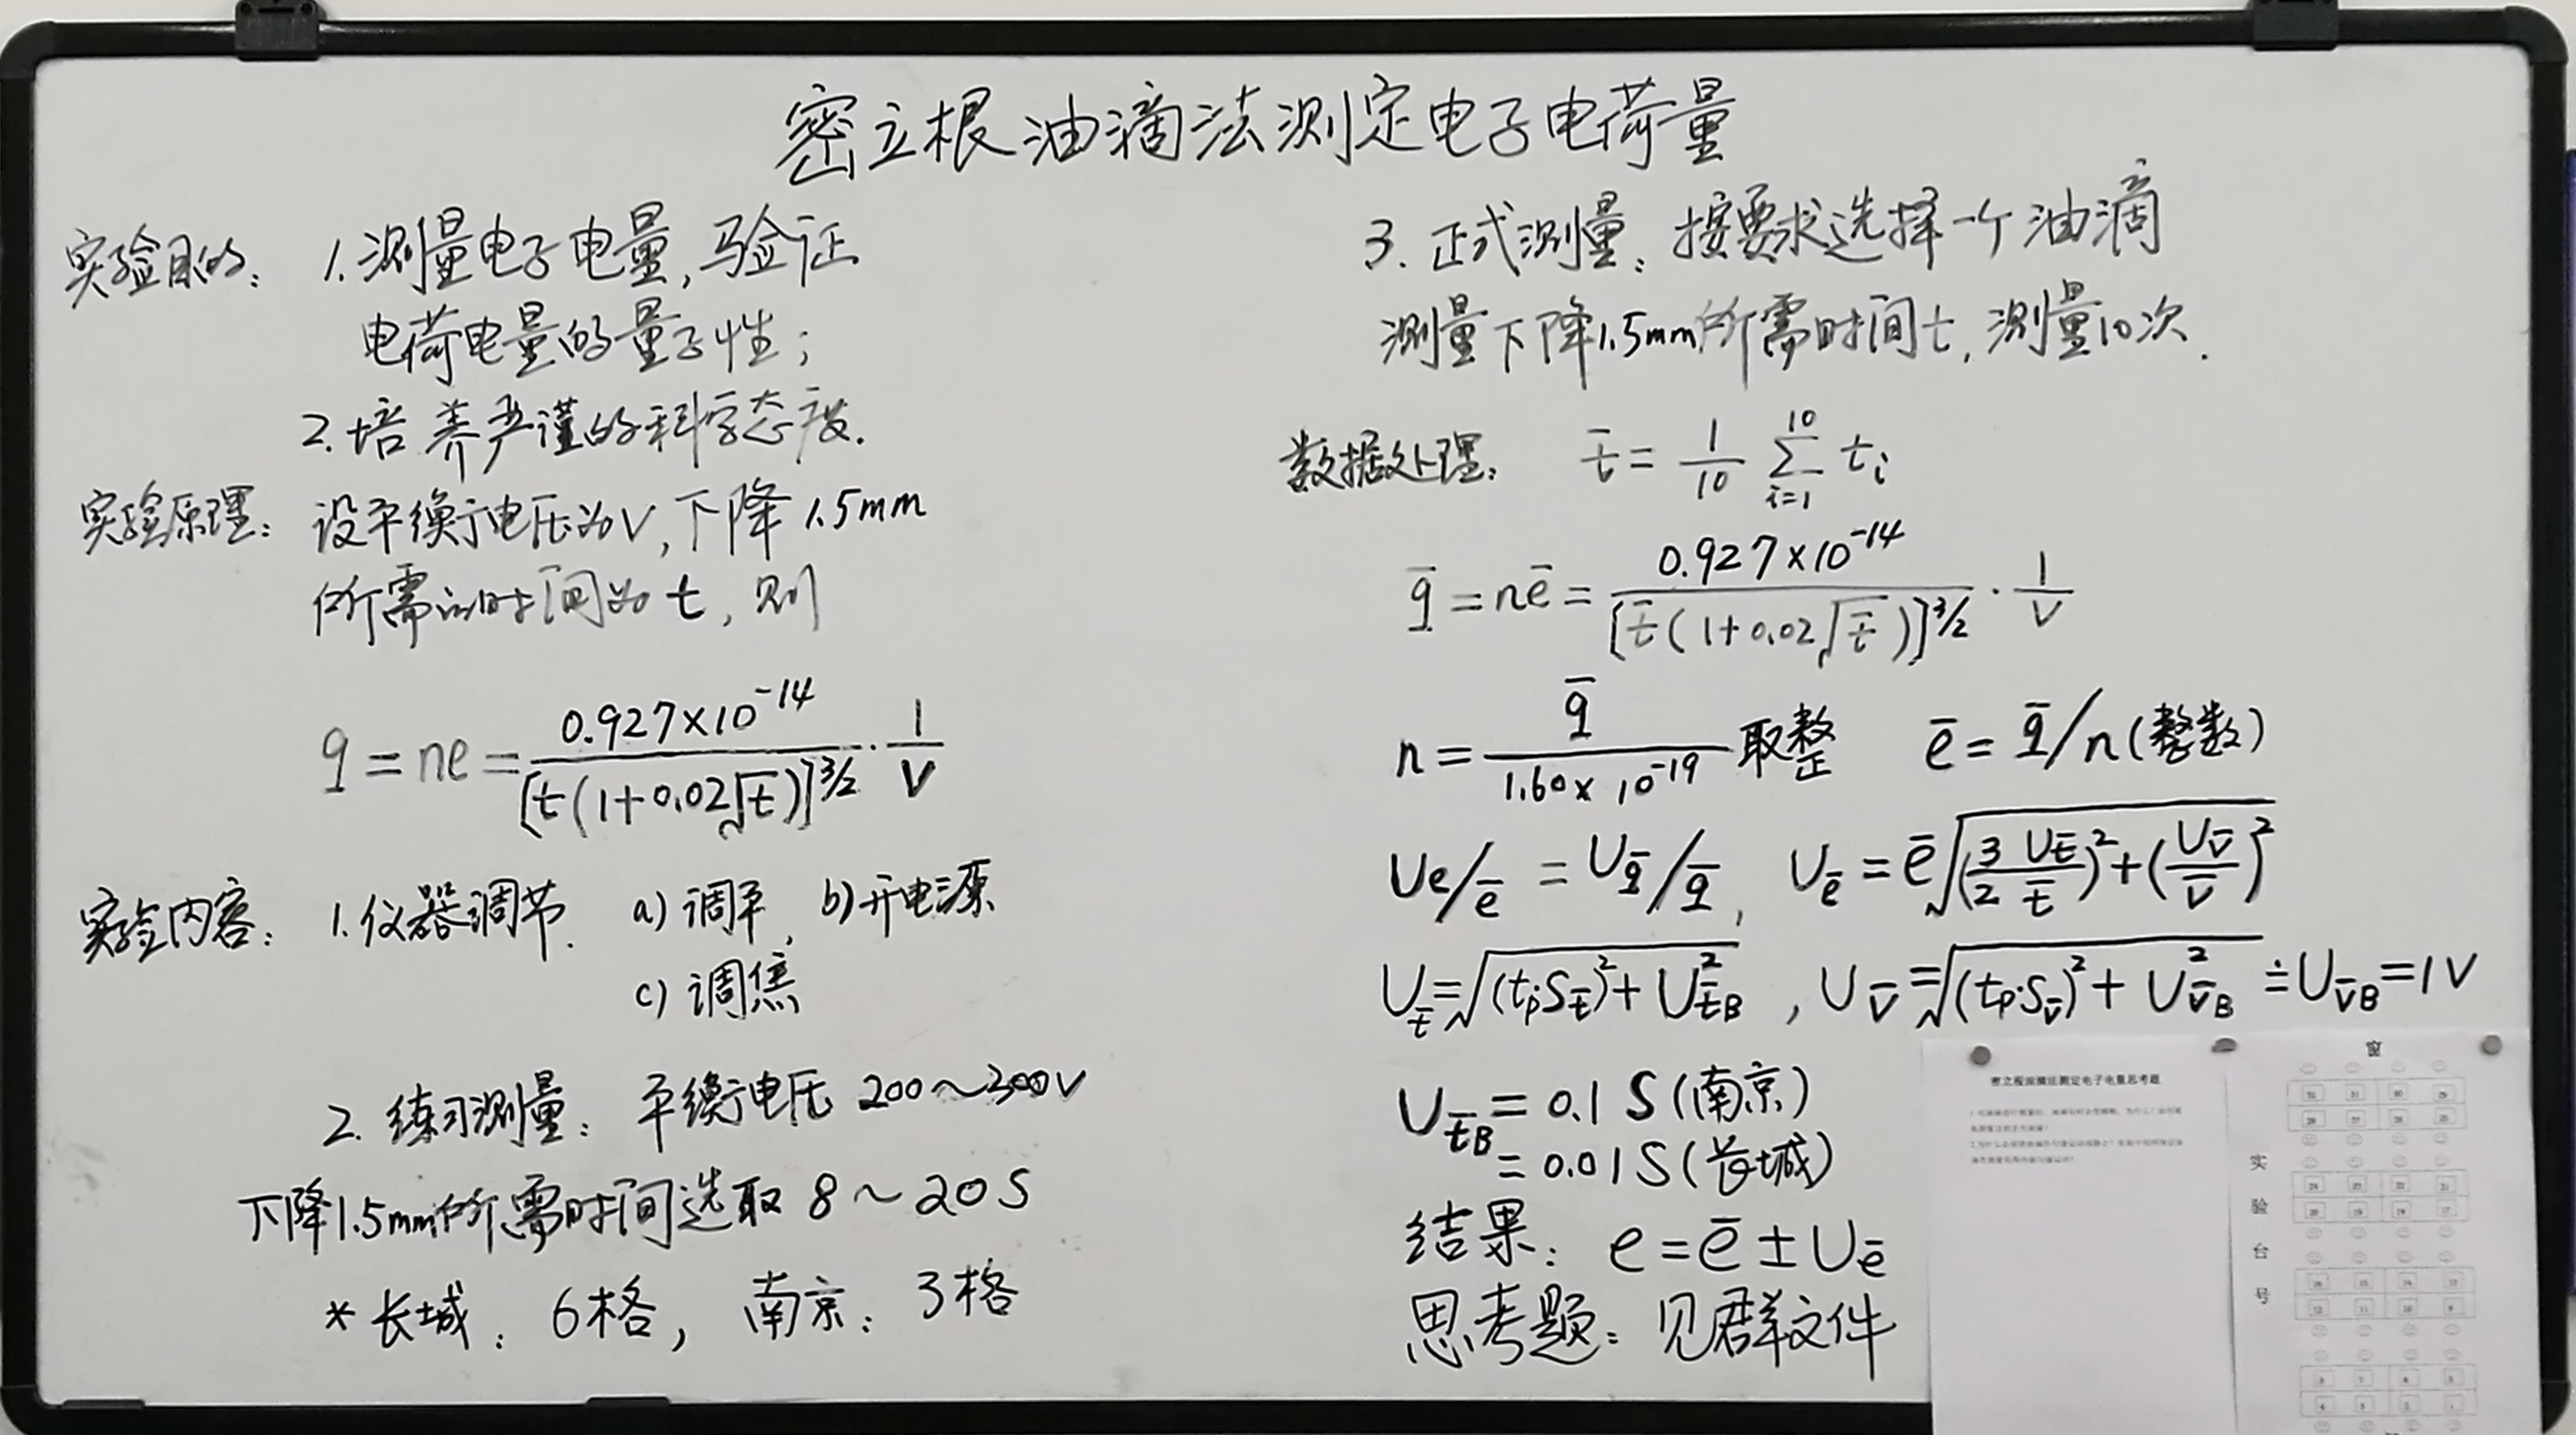 密立根油滴法测定电子电荷量
实验目的: 1.测量电子电量,验证
电荷电量的量子性;
2.培养严谨的科学态度.
实验原理: 设平衡电压为V,下降1.5mm
所需的时间为t,则
q = ne = \frac{0.927×10^{-14}}{[t(1+0.02\sqrt{t})]^{3/2}} · \frac{1}{V}
实验内容: 1.仪器调节. a)调平, b)开电源
c)调焦
2. 练习测量: 平衡电压 200~300V
下降1.5mm所需时间选取 8~20S
* 长城: 6格, 南京: 3格
3. 正式测量: 按要求选择一个油滴
测量下降1.5mm所需时间t,测量10次.
数据处理: \bar{t} = \frac{1}{10} \sum_{i=1}^{10} t_i
\bar{q} = n\bar{e} = \frac{0.927×10^{-14}}{[\bar{t}(1+0.02\sqrt{\bar{t}})]^{3/2}} · \frac{1}{V}
n = \frac{\bar{q}}{1.60×10^{-19}} 取整 \bar{e} = \bar{q}/n(整数)
Ue/\bar{e} = U_{\bar{q}}/\bar{q}, U_{\bar{e}} = \bar{e}\sqrt{(\frac{3}{2}\frac{U_{\bar{t}}}{\bar{t}})^2+(\frac{U_{\bar{v}}}{\bar{v}})^2}
U_{\bar{t}} = \sqrt{(t_p·S_{\bar{t}})^2+U_{\bar{t}B}^2} , U_{\bar{v}} = \sqrt{(t_p·S_{\bar{v}})^2+U_{\bar{v}B}^2} ≐ U_{\bar{v}B} = 1V
U_{\bar{t}B} = 0.1 S(南京)
= 0.01S(长城)
结果: e = \bar{e} ± U_{\bar{e}}
思考题: 见群文件
密立根油滴法测定电子电量思考题
窗
实
验
台
号